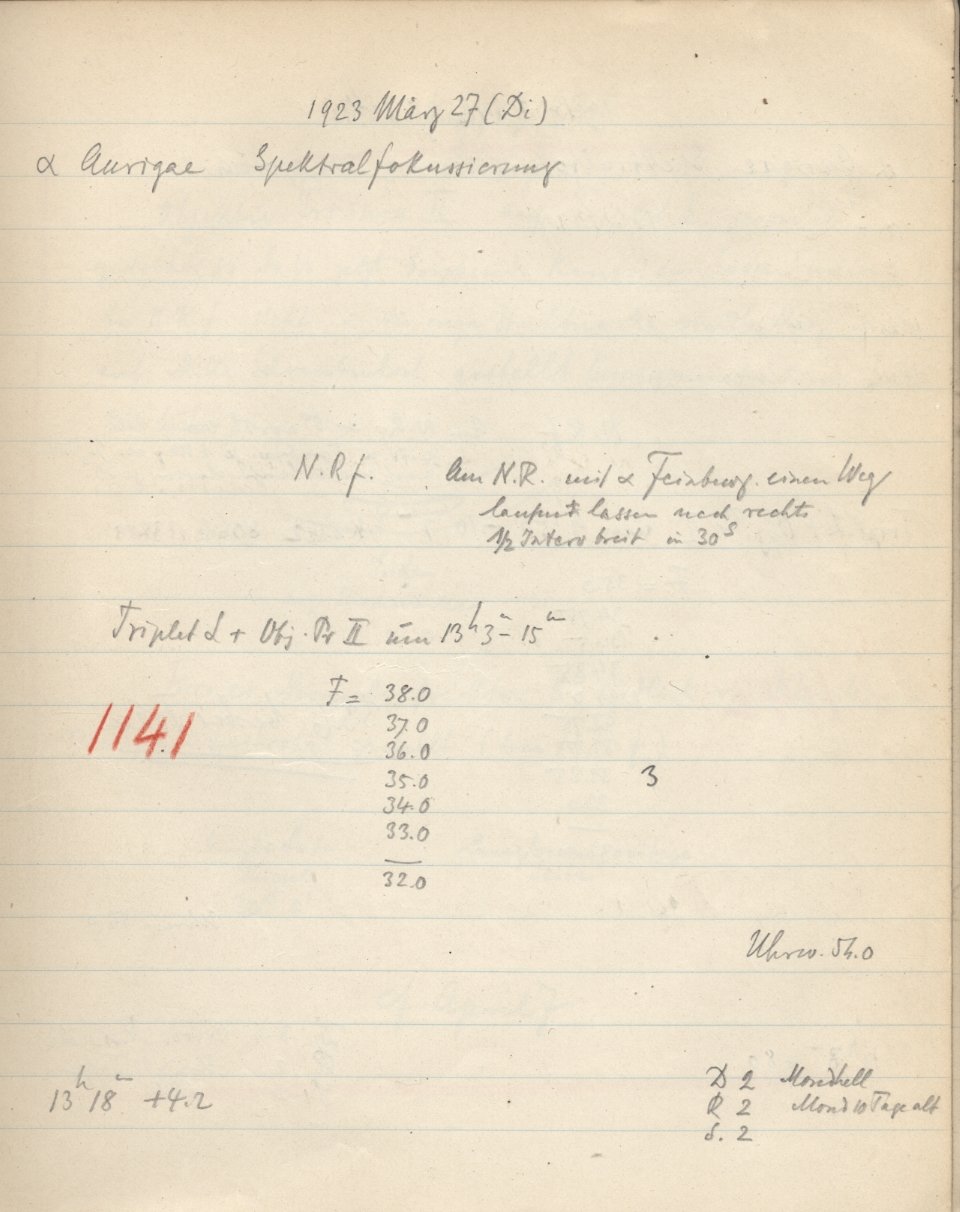 1923 März 27 (Di)
α Aurigae Spektralfokussierung
N.R f. Am N.R. mit α Feinbewg. einen Weg
laufen lassen nach rechts
1/2 Interv breit in 30ˢ
Triplet L + Obj. Pr II um 13ʰ3ᵐ–15ᵐ
F = 38.0
1141
37.0
36.0
35.0
3
34.0
33.0
32.0
Uhrw. 54.0
13ʰ18ᵐ +4.2
D 2 Mondhell
R 2 Mond 10 Tage alt
S. 2